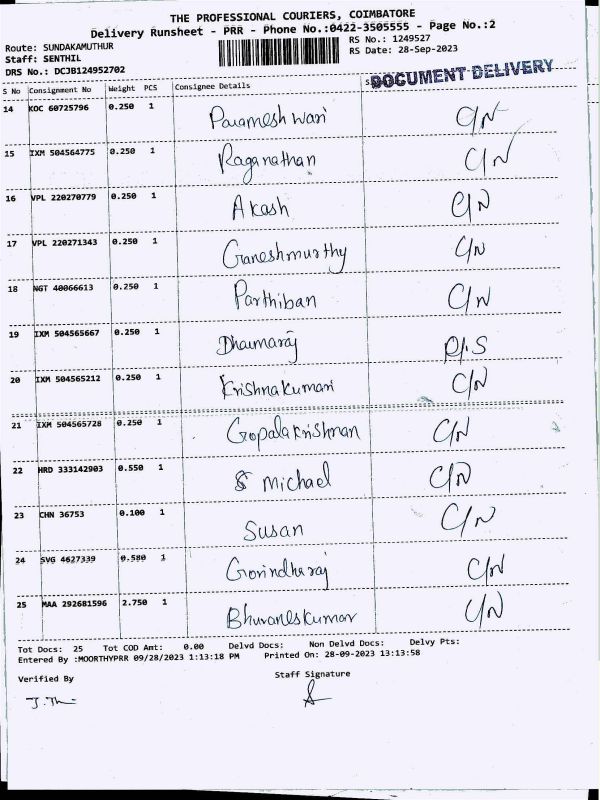 THE PROFESSIONAL COURIERS, COIMBATORE
Delivery Runsheet - PRR - Phone No.:0422-3505555 - Page No.:2
Route: SUNDAKAMUTHUR RS No.: 1249527
Staff: SENTHIL RS Date: 28-Sep-2023
DRS No.: DCJB124952702
DOCUMENT DELIVERY
S No Consignment No Weight PCS Consignee Details
14 KOC 60725796 0.250 1 Parameshwari C/N
15 IXM 504564775 0.250 1 Raganathan C/N
16 VPL 220270779 0.250 1 Akash C/N
17 VPL 220271343 0.250 1 Ganeshmurthy C/N
18 NGT 40066613 0.250 1 Parthiban C/N
19 IXM 504565667 0.250 1 Dharmaraj
20 IXM 504565212 0.250 1 Krishnakumari C/N
21 IXM 504565728 0.250 1 Gopalakrishnan C/N
22 HRD 333142903 0.550 1 S Michael C/N
23 CHN 36753 0.100 1 Susan C/N
24 SVG 4627339 0.580 1 Govindharaj C/N
25 MAA 292681596 2.750 1 Bhuvaneskumar C/N
Tot Docs: 25 Tot COD Amt: 0.00 Delvd Docs: Non Delvd Docs: Delvy Pts:
Entered By :MOORTHYPRR 09/28/2023 1:13:18 PM Printed On: 28-09-2023 13:13:58
Verified By Staff Signature